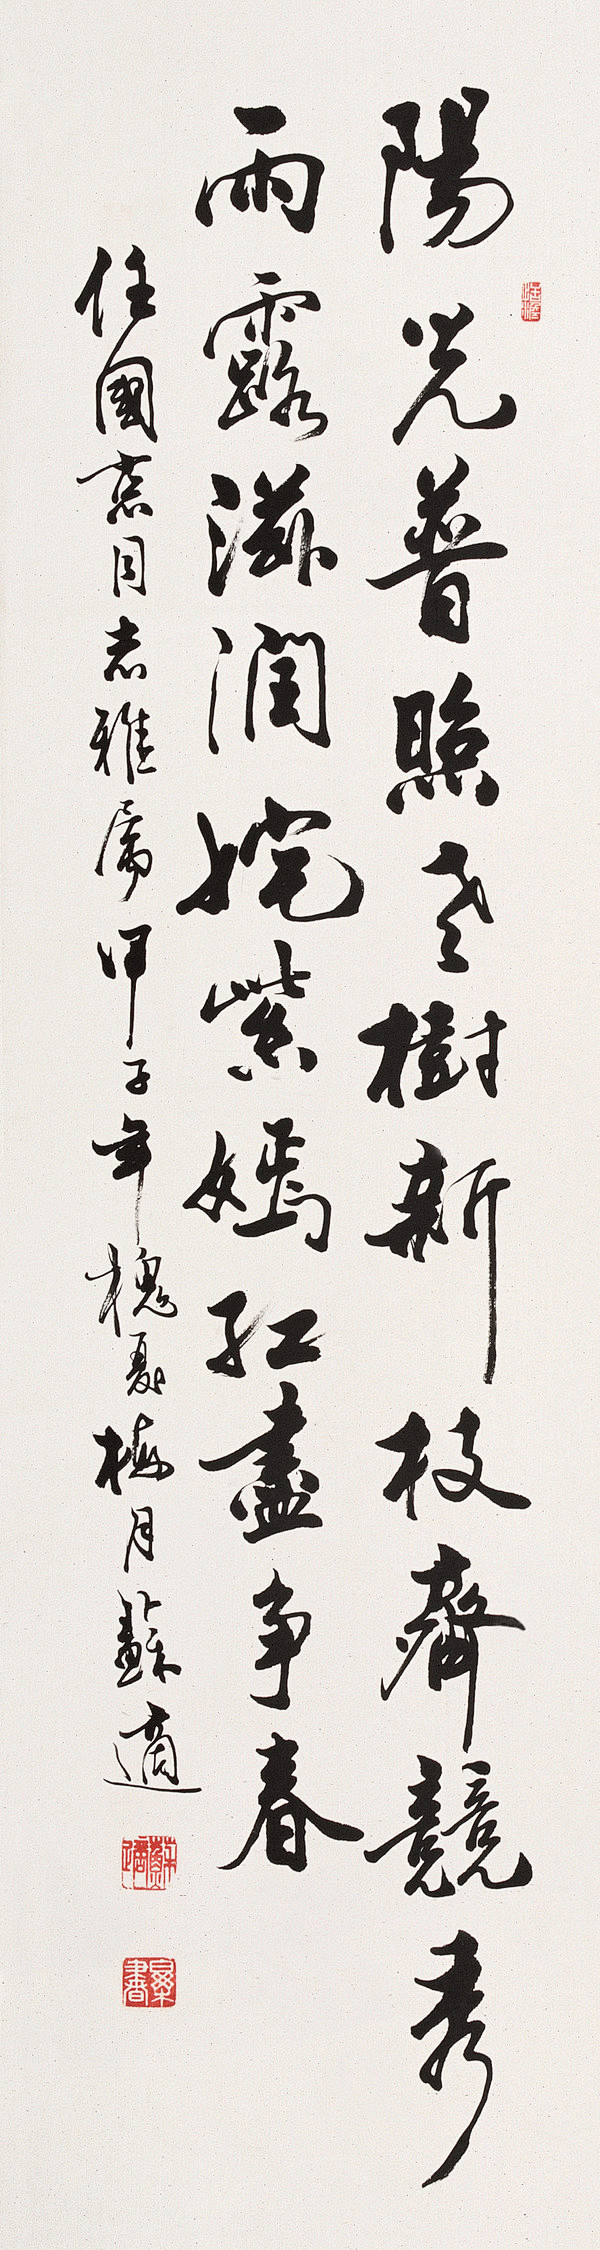 陽光普照老樹新枝齊競秀
雨露滋潤姹紫嫣紅盡爭春
任國志同志雅屬甲子年槐夏梅月蘇適